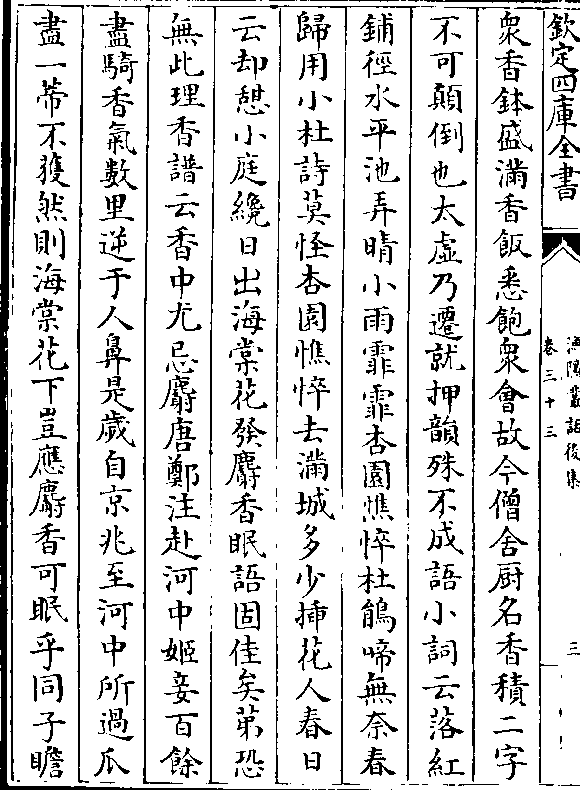 欽定四庫全書
漁隱叢話後集
卷三十三
三
衆香鉢盛滿香飯悉飽衆會故今僧舍厨名香積二字
不可顛倒也太虛乃遷就押韻殊不成語小詞云落紅
鋪徑水平池弄晴小雨霏霏杏園憔悴杜鵑啼無奈春
歸用小杜詩莫怪杏園憔悴去滿城多少揷花人春日
云却憩小庭纔日出海棠花發麝香眠語固佳矣苐恐
無此理香譜云香中尤忌麝唐鄭注赴河中姬妾百餘
盡騎香氣數里逆于人鼻是歲自京兆至河中所過瓜
盡一蔕不獲然則海棠花下豈應麝香可眠乎同子瞻